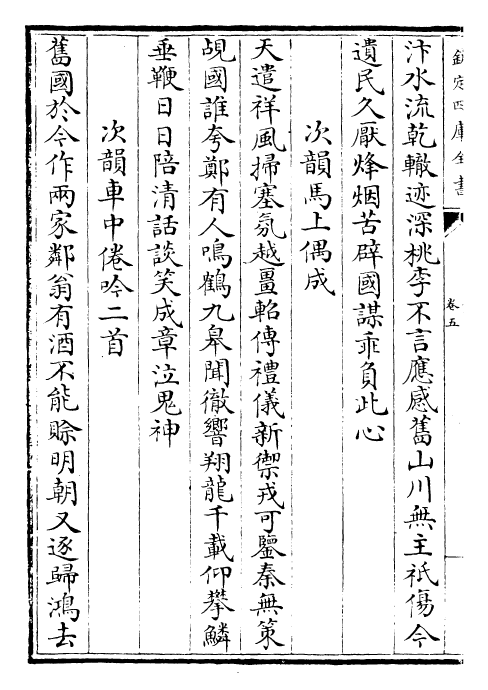 欽定四庫全書
卷五
汴水流乾轍迹深桃李不言應感舊山川無主祇傷今
遺民久厭烽烟苦辟國謀乖負此心
次韻馬上偶成
天遣祥風掃塞氛越畺軺傳禮儀新禦戎可鑒秦無策
覘國誰夸鄭有人鳴鶴九皋聞徹響翔龍千載仰攀鱗
垂鞭日日陪清話談笑成章泣鬼神
次韻車中倦吟二首
舊國於今作兩家鄰翁有酒不能賒明朝又逐歸鴻去